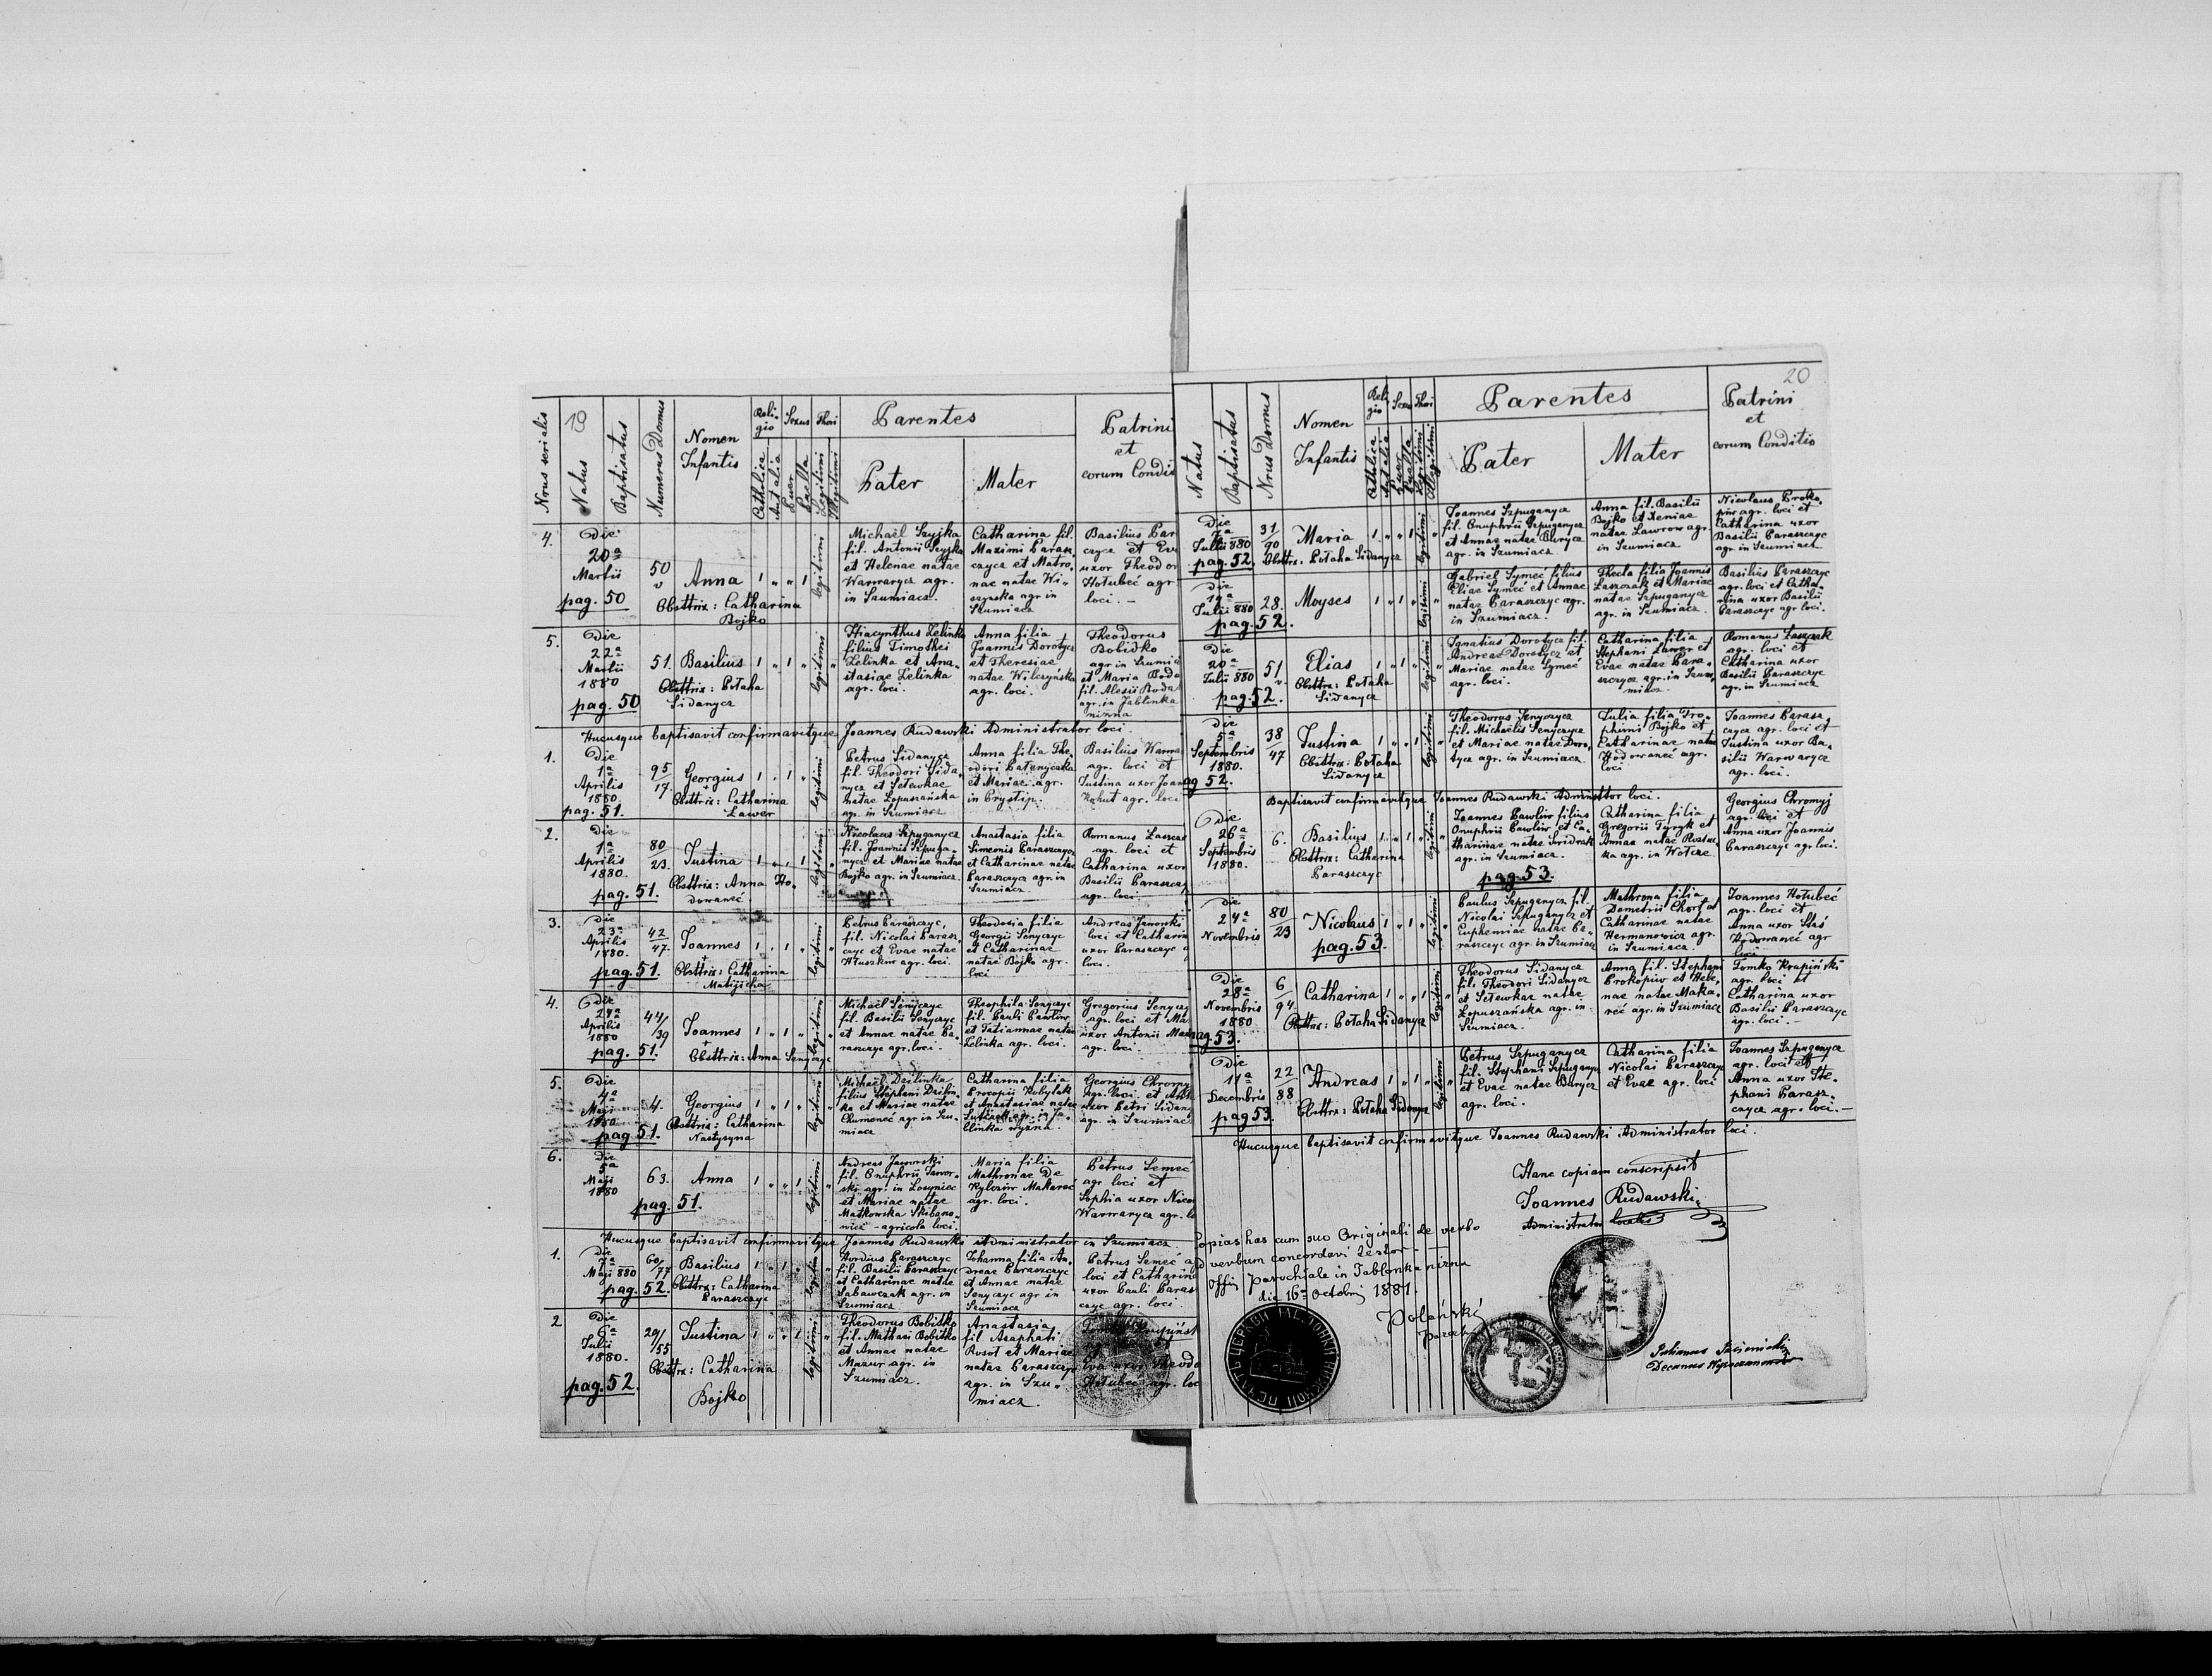 19
Nrus serialis
Natus
Baptisatus
Numerus Domus
Nomen
Infantis
Reli-
gio
Sexus
Thori
Catholica
Aut alia
Puer
Puella
Legitimi
Illegitimi
Parentes
Pater
Mater
Patrini
et
eorum Condi
4.
Die
20a
Martii
pag. 50
50
Anna
1 " " 1
legitimi
Obsttrix: Catharina
Bojko
Michaël Szyjka
fil. Antonii Szyjka
et Helenae natae
Warwarycz agr.
in Szumiacz.
Catharina fil.
Maximi Parasz
czycz et Matro-
nae natae Wi-
szynska agr. in
Szumiacz
Basilius Par
czycz et Eva
uxor Theodor
Hotubeć agr
loci. –
5.
Die
22a
Martii
1880
pag. 50
51.
Basilius
1 " 1 "
legitimi
Obsttrix: Potaha
Sidanycz
Hiacynthus Zelinka
filius Timothei
Zelinka et Ana-
stasiae Zelinka
agr. loci.
Anna filia
Joannis Dorotycz
et Theresiae
natae Wilczyńska
agr. loci.
Theodorus
Bobidko
agr in Szumia
et Maria Boda
fil. Alesii Boda
agr. in Jabłonka
niżna
Hucusque baptisavit confirmavitque Joannes Rudawski Administrator loci.
1.
Die
1a
Aprilis
1880.
pag. 51.
95
17.
Georgius
1 . 1 "
legitimi
Obsttrix: Catharina
Ławer
Petrus Sidanycz
fil. Theodori Sida-
nycz et Setewkae
natae Łopuszańska
agr. in Szumiacz
Anna filia The-
odori
et Mariae agr.
in Prystip.
Basilius Warwa
agr. loci et
Justina uxor Joan
Kohut agr. loci
2.
Die
1a
Aprilis
1880.
pag. 51.
80
23.
Justina
1 " " 1
legitimi
Obsttrix: Anna Ho-
dowaneć
Nicolaus Szpuganycz
fil. Joannis Szpuga-
nycz et Mariae natae
Bojko agr. in Szumiacz.
Anastasia filia
Simeonis Paraszczycz
et Catharinae natae
Paraszczycz agr. in
Szumiacz.
Romanus Łaszcza
agr. loci et
Catharina uxor
Basilii Paraszczy
agr. loci
3.
Die
23a
Aprilis
1880.
pag. 51.
42
47.
Joannes
1 . 1 "
legitimi
Obsttrix: Catharina
Matijicha
Petrus Paraszczyc,
fil. Nicolai Parasz-
czyc et Evae natae
Hłuszkow agr. loci.
Theodosia filia
Georgii Senyczyc
et Catharinae
natae Bojko agr.
loci
Andreas Jaworski
loci et Catharina
uxor Paraszczyc a
loci.
4.
Die
24a
Aprilis
1880
pag. 51.
44/
39
Joannes
1 " 1 "
legitimi
Obsttrix: Anna Senyczyc
Michaël Senyczyc
fil. Basilii Senyczyc
et Annae natae Pa-
raszczyc agr. loci.
Theophila Senyczyc
fil. Pauli Pawliw
et Tatiannae natae
Zelinka agr. loci.
Gregorius Senyczy
agr. loci et Ma
uxor Antonii Maz
agr. loci.
5.
Die
4a
Maji
1880
pag 51.
4.
Georgius
1 " 1 "
legitimi
Obsttrix: Catharina
Nastysyna
Michaël Dzilinka
filius Stephani Dzilin-
ka et Mariae natae
Chumeneć agr in Szu-
miacz
Catharina filia
Procopii Kobylak
et Anastasiae natae
agr. in Ja-
blinka wyżna.
Georgius Chromy
agr. loci. et
uxor Petri Sidany
agr. in Szumiacz
6.
Die
5a
Maji
1880
pag. 51.
63.
Anna
1 " " 1
legitimi
Andreas Jaworski
fil. Onuphrii Jawor-
ski agr. in Losyniec
et Mariae natae
Matkowska Skibano-
wicz - agricola loci.
Maria filia
Mathronae De
Kylciow Makareć
agr. loci.
Petrus Semeć
agr loci et
Sophia uxor Nico
Warwarycz agr. lo
Hucusque baptisavit confirmavitque Joannes Rudawski Administrator in Szumiacz.
1.
Die
7a
Maji 880
pag. 52.
60/
77
Basilius
1 " 1 "
legitimi
Obsttrix: Catharina
Paraszczyc
Hordius Paraszczyc
fil. Basilii Paraszczyc
et Catharinae natae
Sabawczak agr. in
Szumiacz
Johanna filia An-
dreae Paraszczyc
et Annae natae
Senyczyc agr in
Szumiacz
Petrus Semeć a
loci et Catharina
uxor Pauli Paras
czyc agr. loci
2
Die
6a
Julii
1880.
pag. 52.
29/
55
Justina
1 " " 1
legitimi
Obsttrx: Catharina
Bojko
Theodorus Bobitko
fil. Mathaei Bobitko
et Annae natae
Mazur agr. in
Szumiacz.
Anastasia
fil Asaphati
Rosoł et Mariae
natae Paraszczyc
agr. in Szu-
miacz.
Eva uxor Theodo
Hotubeć agr. loc
20
Natus
Baptisatus
Nrus Domus
Nomen
Infantis
Reli
gio
Sexus
Thori
Catholica
Aut alia
Puer
Puella
Legitimi
Illegitimi
Parentes
Pater
Mater
Patrini
et
eorum Conditio
Die
7a
Julii 880
pag. 52.
31/
90
Maria
1 " " 1
legitimi
Obsttrx: Potaha Sidanycz
Joannes Szpuganycz
fil. Onuphrii Szpuganycz
et Annae natae Burycz
agr. in Szumiacz
Anna fil. Basilii
Bojko et Xeniae
natae Lawrow agr.
in Szumiacz
Nicolaus Proko-
piw agr. loci et
Catharina uxor
Basilii Paraszczyc
agr in Szumiacz
Die
19a
Julii 880
pag. 52.
28.
Moyses
1 " 1 "
legitimi
Gabriel Symeć filius
Eliae Symeć et Annae
natae Paraszczyc agr.
in Szumiacz.
Thecla filia Joannis
Laszczak et Mariae
natae Szpuganycz
agr. in Szumiacz.
Basilius Paraszczyc
agr. loci et Catha-
rina uxor Basilii
Paraszczyc agr loci.
Die
20a
Julii 880
pag. 52.
51
Elias
1 " 1 "
legitimi
Obsttrx: Potaha
Sidanycz
Ignatius Dorotycz fil.
Andreae Dorotycz et
Mariae natae Symeć
agr. loci.
Catharina filia
Stephani Lawer et
Evae natae Para-
szczyc agr. in Szum-
miacz.
Romanus Łaszczak
agr. loci et
Catharina uxor
Basilii Paraszczyc
agr. in Szumiacz
Die
5a
Septembris
1880.
ag 52.
38
47
Justina
1 " " 1
legitimi
Obsttrix: Potaha
Sidanycz
Theodorus Senyczycz
fil. Michaëlis Senyczycz
et Mariae natae Doro-
tycz agr. in Szumiacz.
Julia filia Tro-
phimi Bojko et
Catharinae natae
Hodowaneć agr.
loci
Joannes Parasz-
czycz agr. loci et
Justina uxor Ba-
silii Warwarycz
agr. loci.
Baptisavit confirmavitque Joannes Rudawski Administtor loci.
Die
26a
Septembris
1880.
6.
Basilius
1 " 1 "
legitimi
Obsttrix: Catharina
Paraszczyc
Joannes Pawliw filius
Onuphrii Pawliw et Ca-
tharinae natae Swidrak
agr. in Szumiacz.
pag. 53.
Catharina filia
Gregorii Turyk et
Annae natae
agr. in Wołcze.
Georgius Chromyj
agr. loci et
Anna uxor Joannis
Paraszczyc agr loci.
Die
24a
Novembris
80
23
Nicolaus
1 " 1 "
legitimi
pag. 53.
Paulus Szpuganycz fil.
Nicolai Szpuganycz et
Euphemiae natae Pa-
raszczyc agr in Szumiacz
Mathrona filia
Demetrii Chort et
Catharinae natae
Hermanowicz agr.
in Szumiacz.
Joannes Hotubeć
agr. loci et
Anna uxor Stas
Hodowaneć agr
loci
Die
28a
Novembris
1880
ag 53.
6
94
Catharina
1 " " 1
legitimi
Obsttrx: Potaha Sidanycz
Theodorus Sidanycz
fil. Theodori Sidanycz
et Setewkae natae
Łopuszańska agr. in
Szumiacz.
Anna fil. Stephani
Prokopiw et Hele-
nae natae Maka-
reć agr. in Szumiacz
Tomko Krupiński
agr. loci et
Catharina uxor
Basilii Paraszczyc
agr. loci.
Die
11a
Decembris
pag 53.
22
88
Andreas
1 " 1 "
legitimi
Obsttrx: Potaha Sidanycz
Petrus Szpuganycz
fil. Stephani Szpuganycz
et Evae natae Burycz
agr. loci.
Catharina filia
Nicolai Paraszczyc
et Evae agr. loci
Joannes Szpuganycz
agr. loci et
Anna uxor Ste-
phani Parasz-
czycz agr. loci. –
Hucusque baptisavit confirmavitque Joannes Rudawski Administrator loci.
Hanc copiam conscripsit
Joannes Rudawski
Administrator localis
Copias has cum suo Originali de verbo
ad verbum concordavi testor –
Offi parochiale in Jabłonka niżna
die 16a Octobris 1881.
Polański
Julianus
Decanus